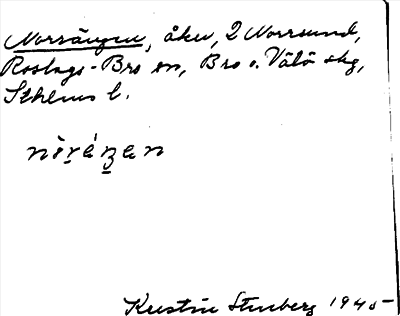 Norrängen, åker, 2 Norrsund,
Roslags-Bro sn, Bro o. Vätö skg,
Sthlms l.
nòrǽŋen
Kerstin Stenberg 1945